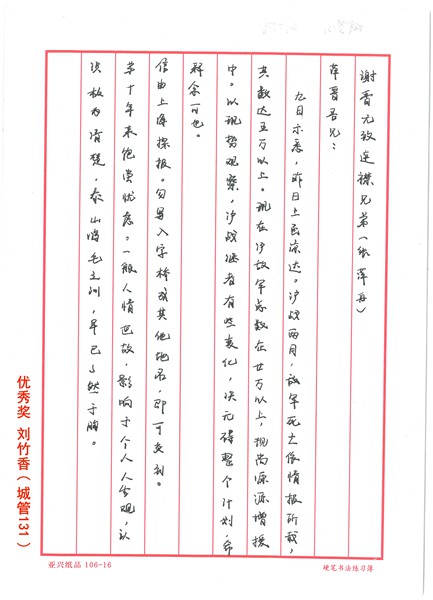 谢晋元致连襟兄弟(张萍舟)
萍舟吾兄：
九日示悉，昨日上函谅达。沪战两月，敌军死亡依情报所载，
其数达五万以上。现在沪敌军总数在廿万以上，现尚源源增援
中。以现势观察，沪战继者有些变化，决无碍整个计划，希
释念可也。
信由上海探投。勿写八字桥或其他地名，即可交到。
弟十年来饱尝忧患，一般人情世故，影响于个人人生观，认
识极为清楚，泰山鸿毛之训，早已了然于胸。
优秀奖 刘竹香（城管131）
亚兴纸品 106-16
硬笔书法练习簿